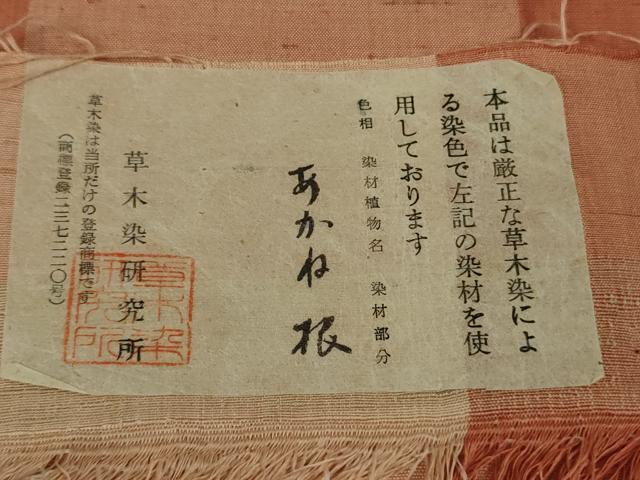 本品は厳正な草木染によ
る染色で左記の染材を使
用しております
色相 染材植物名 染材部分
あかね 根
草木染研究所
草木染は当所だけの登録商標です
(商標登録二三七二二〇号)
草木染
研究所